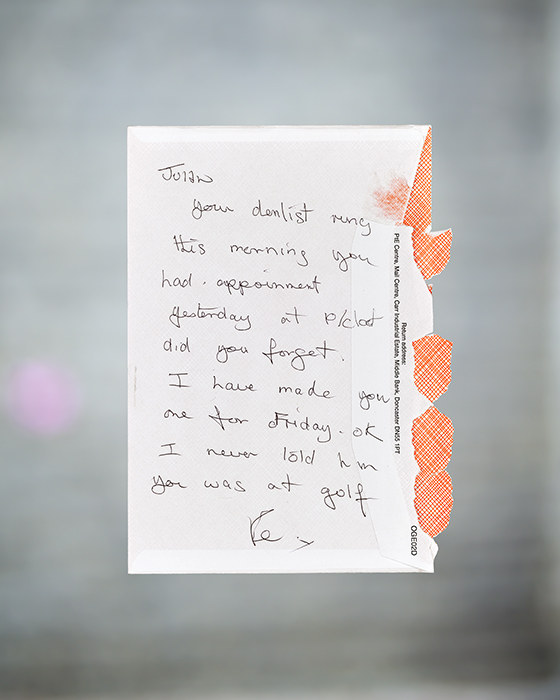 Julian
your dentist rung
this morning you
had. appoinment
yesterday at
did you forget.
I have made you
one for Friday. ok
I never told him
you was at golf
Return address:
PtE Centre, Mail Centre, Carr Industrial Estate, Middle Bank, Doncaster DN55 1PT
OGE02D